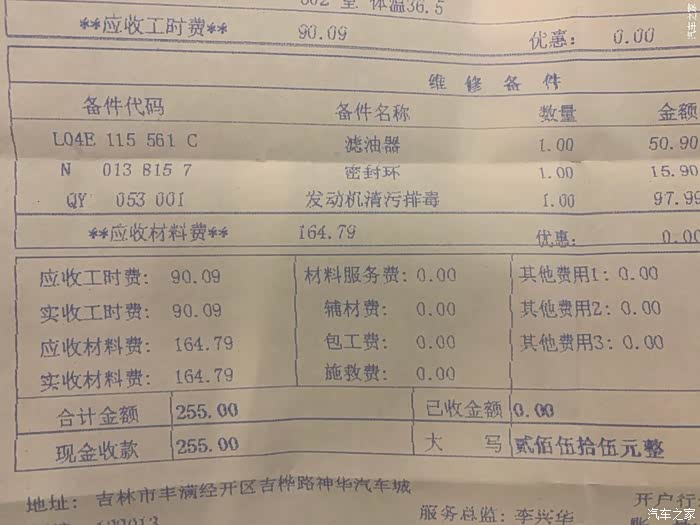 体温36.5
**应收工时费** 90.09 优惠: 0.00
维 修 备 件
备件代码 备件名称 数量 金额
L04E 115 561 C 滤油器 1.00 50.90
N 013 815 7 密封环 1.00 15.90
QY 053 001 发动机清污排毒 1.00 97.99
**应收材料费** 164.79 优惠: 0.00
应收工时费: 90.09 材料服务费: 0.00 其他费用1: 0.00
实收工时费: 90.09 辅材费: 0.00 其他费用2: 0.00
应收材料费: 164.79 包工费: 0.00 其他费用3: 0.00
实收材料费: 164.79 施救费: 0.00
合计金额 255.00 已收金额 0.00
现金收款 255.00 大 写 贰佰伍拾伍元整
地址: 吉林市丰满经开区吉桦路神华汽车城 开户行
服务总监: 李兴华
汽车之家
汽车之家